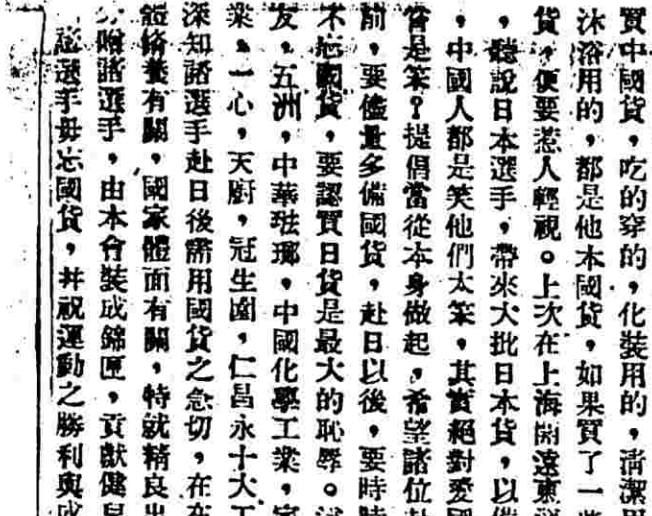 買中國貨，吃的穿的，化裝用的，清潔
沐浴用的，都是他本國貨，如果買了一些
貨，便要惹人輕視。上次在上海開遠東
，聽說日本選手，帶來大批日本貨，以備
，中國人都是笑他們太笨，其實絕對愛國
是笨？提倡當從本身做起，希望諸位赴
前，要儘量多備國貨，赴日以後，要時時
不忘國貨，要認買日貨是最大的恥辱。
友，五洲，中華琺瑯，中國化學工業，家
業，一心，天厨，冠生園，仁昌永十大工
深知諸選手赴日後需用國貨之急切，在在
體修養有關，國家體面有關，特就精良出
分贈諸選手，由本會裝成錦匣，貢獻健兒
選手毋忘國貨，并祝運動之勝利與成